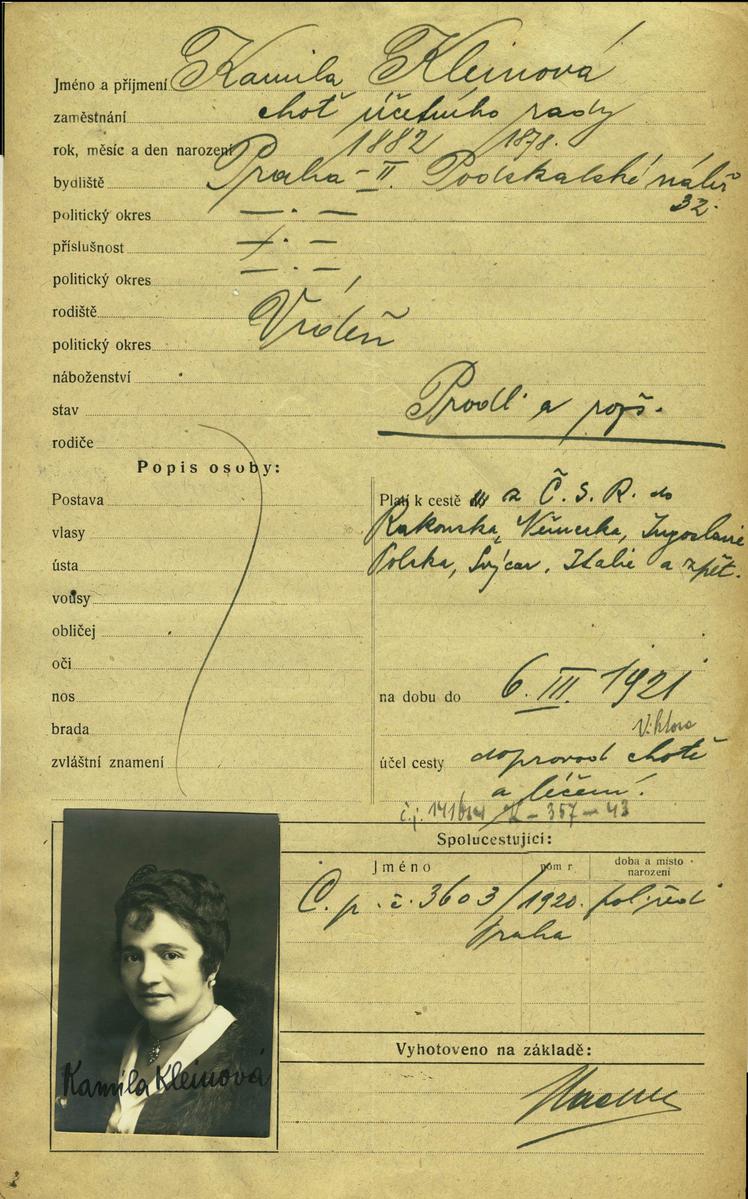 Jméno a příjmení Kamila Kleinová
zaměstnání choť účetního rady
rok, měsíc a den narození 1882 1878.
bydliště Praha – II. Podskalské nábř.
32.
politický okres — · —
příslušnost — · —
politický okres — · —
rodiště Vídeň
politický okres
náboženství
stav
Prodl. a rozš.
rodiče
Popis osoby:
Postava
vlasy
ústa
vousy
obličej
oči
nos
brada
zvláštní znamení
Platí k cestě z Č. S. R. do
Rakouska, Německa, Jugoslavie
Polska, Švýcar, Italie a zpět.
na dobu do 6. III. 1921
Viktora
účel cesty doprovod chotě
a léčení.
č.j. K – 357 – 43
Spolucestující:
Jméno
doba a místo
narození
C. p. č. 3603/1920. pol. řed.
Praha
Vyhotoveno na základě:
Kamila Kleinová